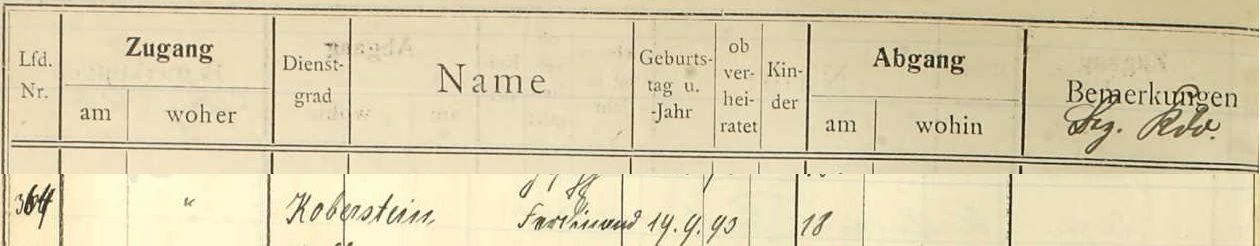 Lfd. Nr. Zugang am woher Dienst-grad Name Geburts-tag u. -Jahr ob ver-hei-ratet Kin-der Abgang am wohin Bemerkungen
364 " Koberstein, Ferdinand 14. 9. 93 18